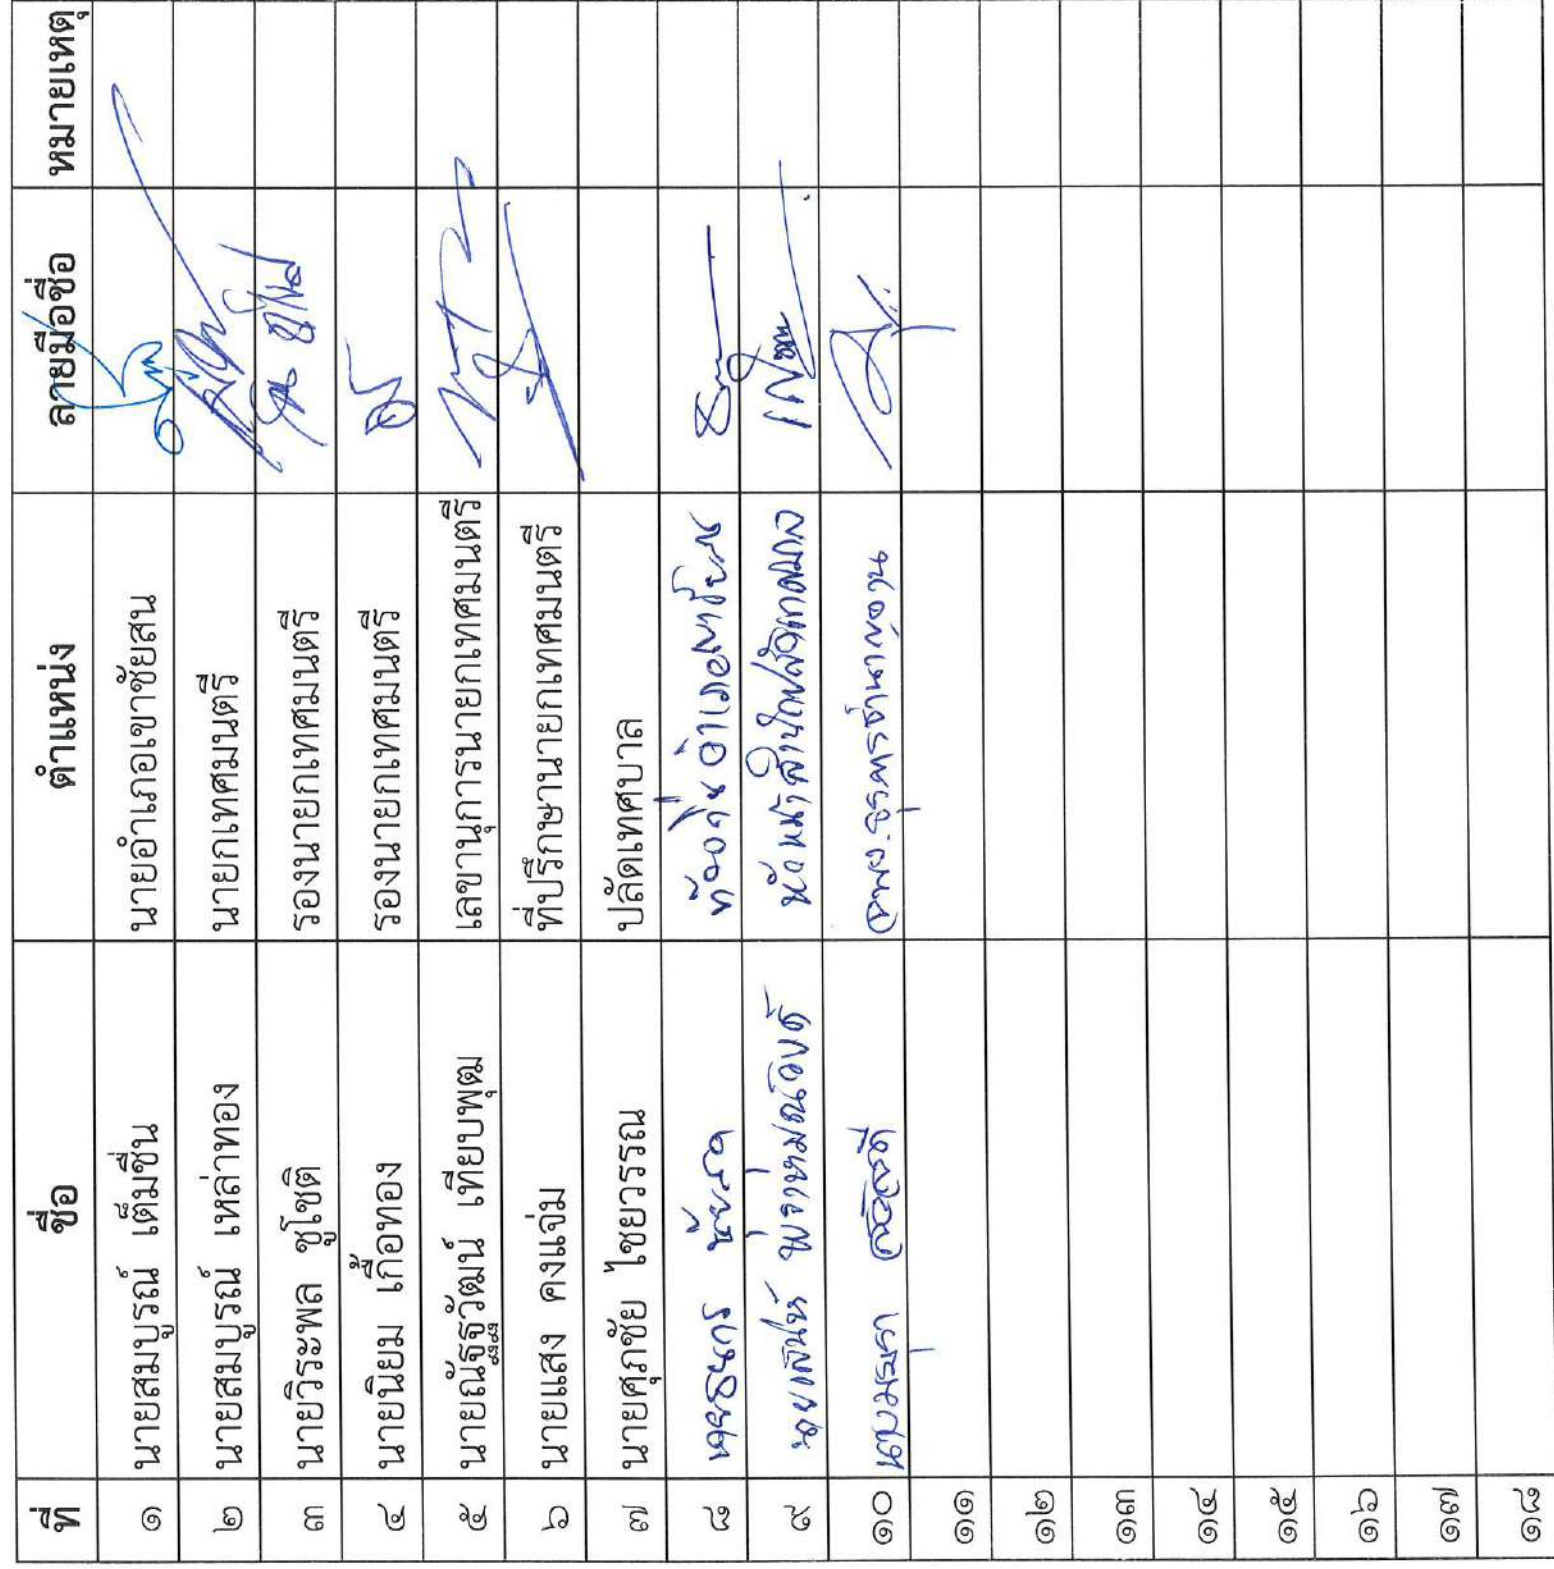 ที่ ชื่อ ตำแหน่ง ลายมือชื่อ หมายเหตุ
๑ นายสมบูรณ์ เต็มชื่น นายอำเภอเขาชัยสน
๒ นายสมบูรณ์ เหล่าทอง นายกเทศมนตรี
๓ นายวิระพล ชูโชติ รองนายกเทศมนตรี
๔ นายนิยม เกื้อทอง รองนายกเทศมนตรี
๕ นายณัฐฐวัฒน์ เทียบพุฒ เลขานุการนายกเทศมนตรี
๖ นายแสง คงแจ่ม ที่ปรึกษานายกเทศมนตรี
๗ นายศุภชัย ไชยวรรณ ปลัดเทศบาล
๘ ท้องถิ่นอำเภอเขาชัยสน
๙ หัวหน้าสำนักปลัดเทศบาล
๑๐
๑๑
๑๒
๑๓
๑๔
๑๕
๑๖
๑๗
๑๘